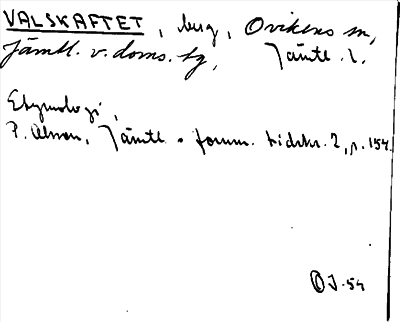 VALSKAFTET, berg, Ovikens sn,
Jämtl. v. doms. tg, Jämtl. l.
Etymologi,
P. Olsson, Jämtl. forum. tidskr. 2, p. 154.
OJ-54